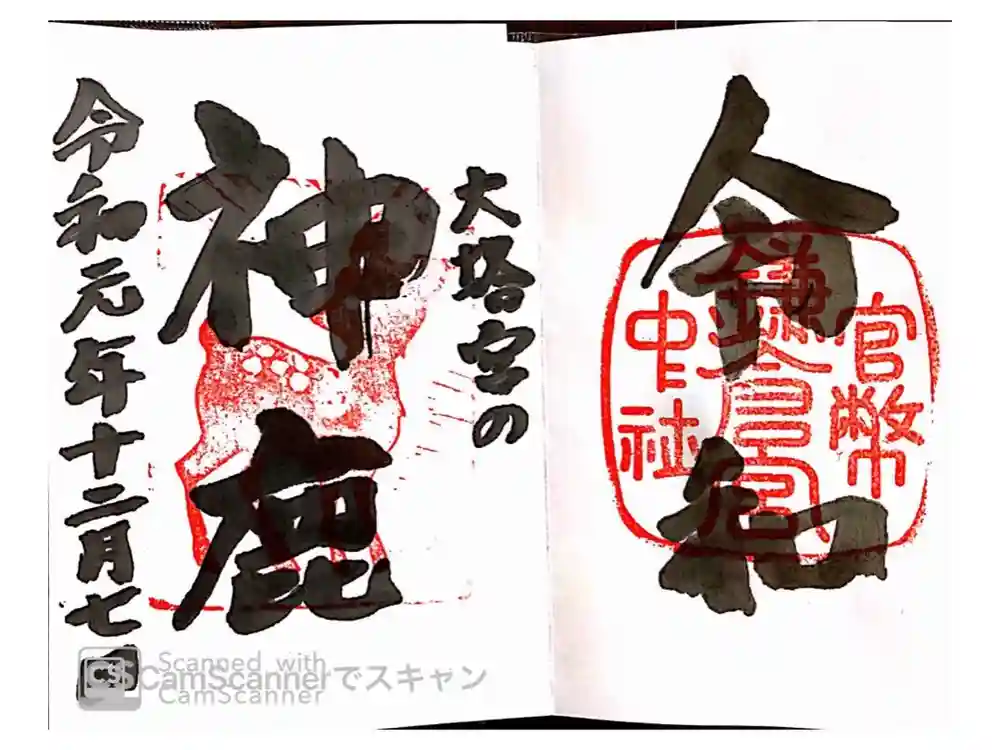 令和
官幣
鎌倉宮
中社
大塔宮の
神鹿
令和元年十二月七日
CS
Scanned with
CamScanner
CamScannerでスキャン